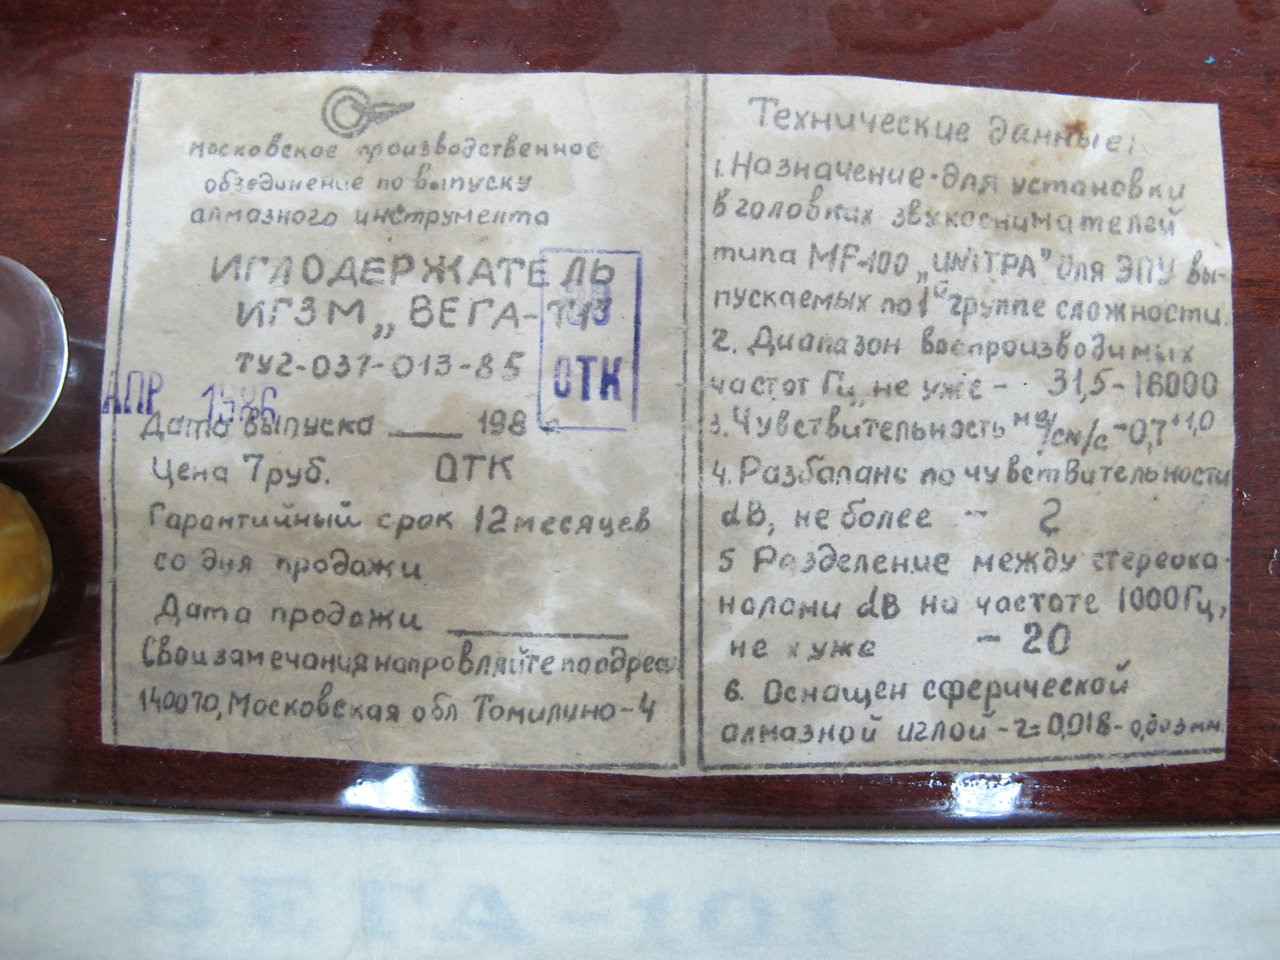 московское производственное
объединение по выпуску
алмазного инструмента
ИГЛОДЕРЖАТЕЛЬ
ИГЗМ „ВЕГА-ТУ"
ТУ2-037-013-85
ОТК
АПР 1986
Дата выпуска ____ 198
Цена 7 руб. ОТК
Гарантийный срок 12 месяцев
со дня продажи
Дата продажи ________
Свои замечания направляйте по адресу
140070, Московская обл Томилино-4
Технические данные:
1. Назначение-для установки
в головках звукоснимателей
типа MF-100 „UNITРА" для ЭПУ вы-
пускаемых по 1й группе сложности.
2. Диапазон воспроизводимых
частот Гц, не уже - 31,5-16000
3. Чувствительность /см/с -0,7+1,0
4. Разбаланс по чувствительности
dB, не более - 2
5 Разделение между стереока-
налами dB на частоте 1000 Гц,
не хуже - 20
6. Оснащен сферической
алмазной иглой - r=0,018-0,003мм.
ВЕГА-101